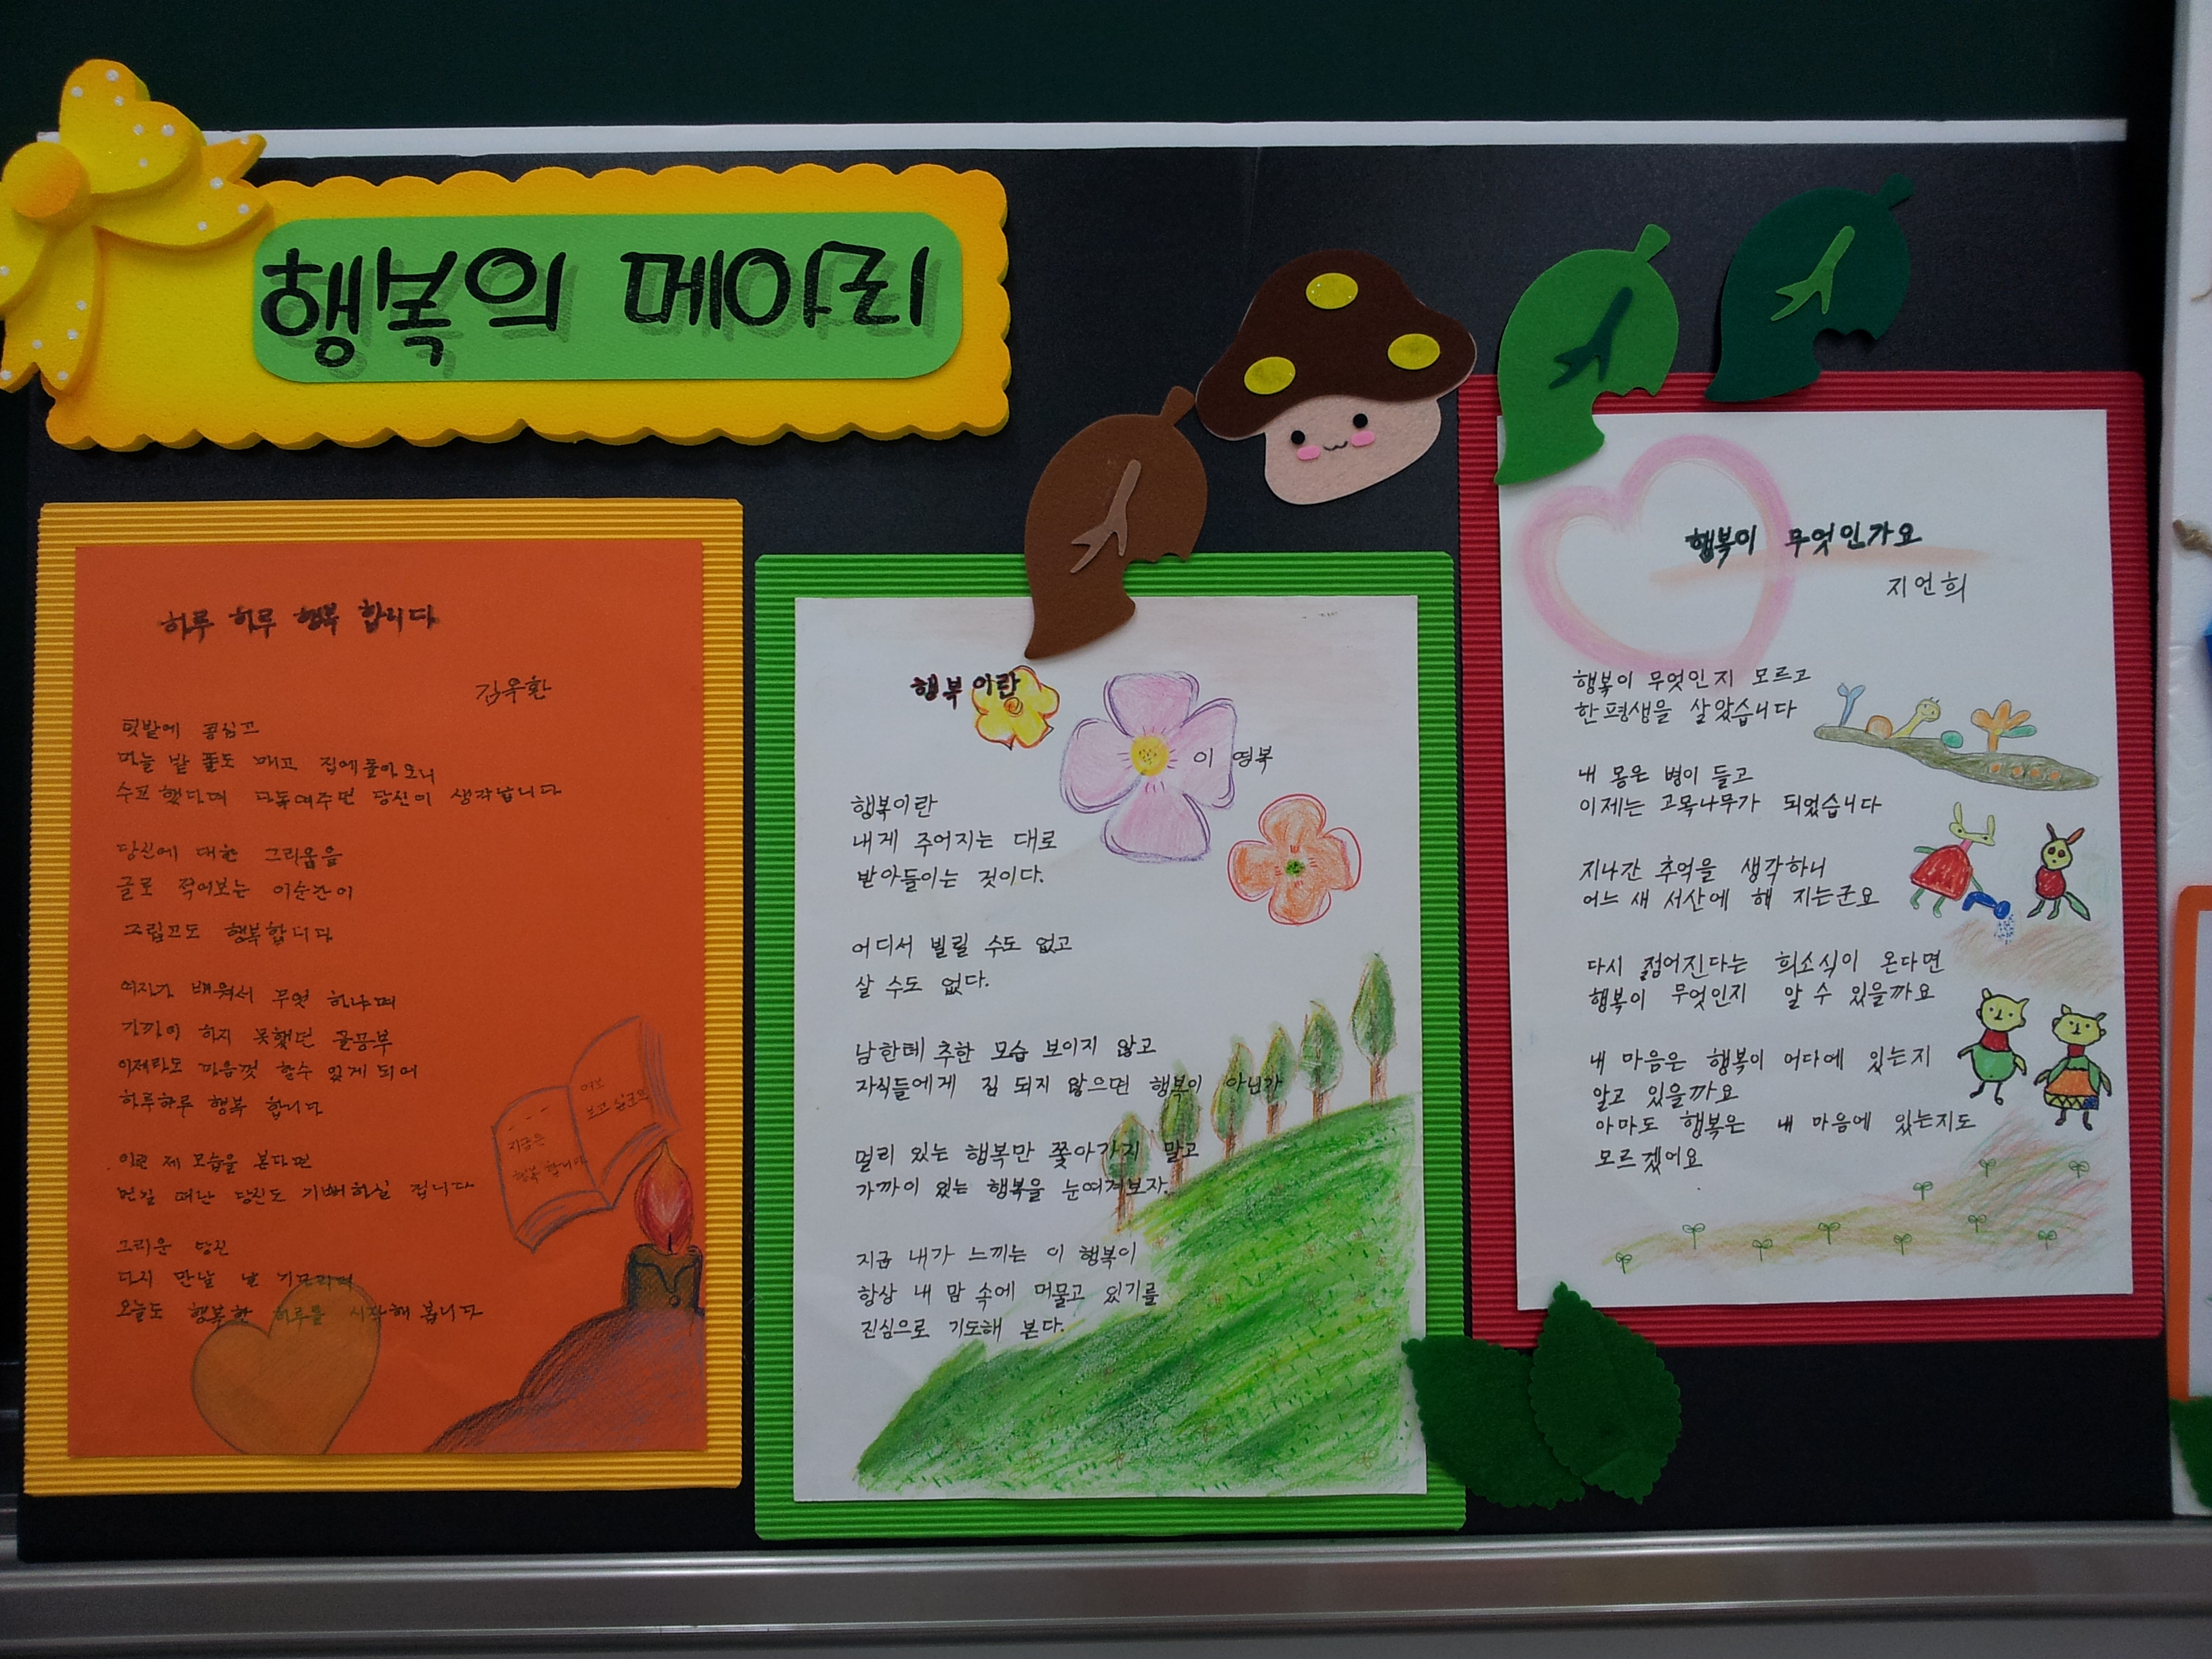 행복의 메아리
하루 하루 행복 합니다
텃밭에 콩심고
마늘 밭 풀도 매고 집에돌아오니
수고 했다며 다독여주던 당신이 생각납니다
당신에 대한 그리움을
글로 적어보는 이순간이
그립고도 행복합니다
여자가 배워서 무엇 하냐며
가까이 하지 못했던 글공부
이제라도 마음껏 할수 있게 되어
하루하루 행복 합니다
이런 제 모습을 본다면
먼길 떠난 당신도 기뻐하실 겁니다
그리운 당신
다시 만날 날 기다리며
오늘도 행복한 하루를 시작해 봅니다
지금은
행복 합니다
여보
보고
행복이란
이 영복
행복이란
내게 주어지는 대로
받아들이는 것이다.
어디서 빌릴 수도 없고
살 수도 없다.
남한테 추한 모습 보이지 않고
자식들에게 짐 되지 않으면 행복이 아닌가
멀리 있는 행복만 쫓아가지 말고
가까이 있는 행복을 눈여겨보자.
지금 내가 느끼는 이 행복이
항상 내 맘 속에 머물고 있기를
진심으로 기도해 본다.
행복이 무엇인가요
지언희
행복이 무엇인지 모르고
한평생을 살았습니다
내 몸은 병이 들고
이제는 고목나무가 되었습니다
지나간 추억을 생각하니
어느 새 서산에 해 지는군요
다시 젊어진다는 희소식이 온다면
행복이 무엇인지 알 수 있을까요
내 마음은 행복이 어디에 있는지
알고 있을까요
아마도 행복은 내 마음에 있는지도
모르겠어요